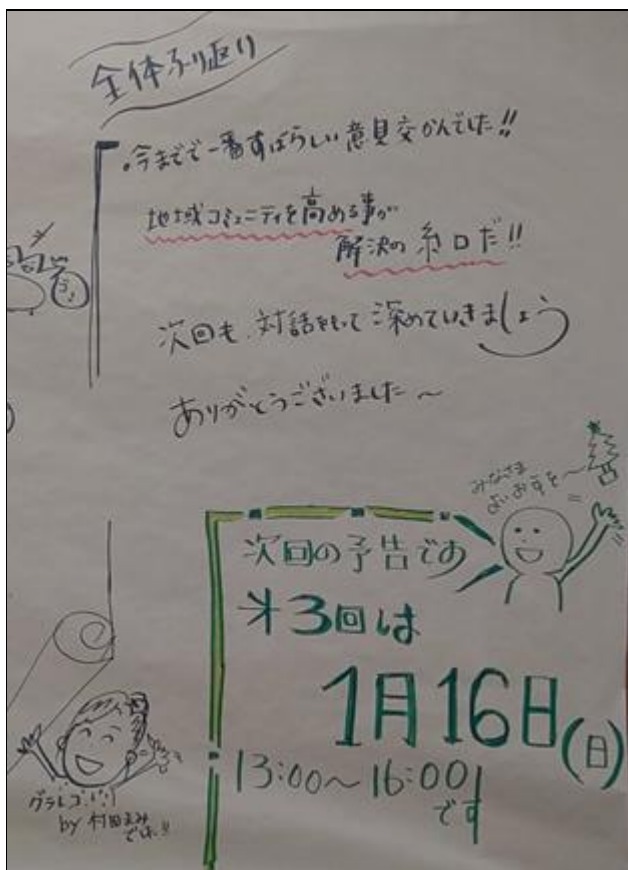 全体ふり返り
・今までで一番すばらしい意見交かんでした!!
地域コミュニティを高める事が
解決の糸口だ!!
次回も、対話をもって深めていきましょう
ありがとうございました〜
みなさま
よいお年を〜
次回の予告です
才3回は
1月16日(日)
13:00〜16:00
です
グラレコ
by 村田
でした!!